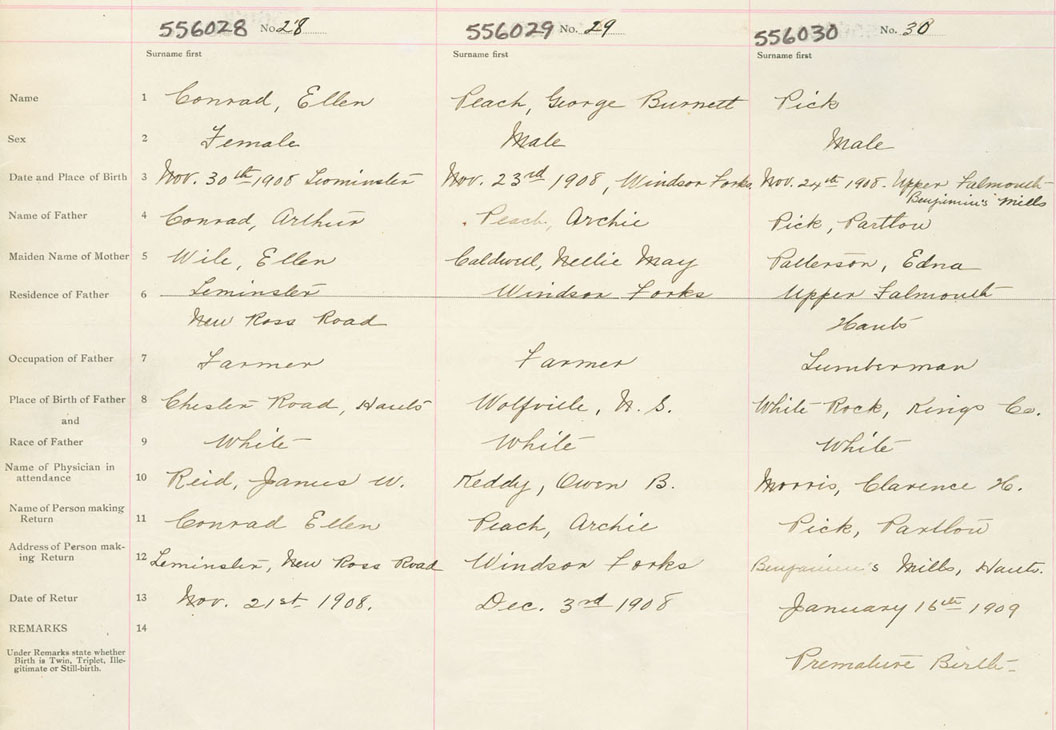 556028 No. 28 556029 No. 29 556030 No. 30
Surname first Surname first Surname first
Name 1 Conrad, Ellen Peach, George Burnett Pick
Sex 2 Female Male Male
Date and Place of Birth 3 Nov. 30th 1908 Leominster Nov. 23rd 1908, Windsor Forks Nov. 24th 1908. Upper Falmouth
Benjimin's Mills
Name of Father 4 Conrad, Arthur Peach, Archie Pick, Partlow
Maiden Name of Mother 5 Wile, Ellen Caldwell, Nellie May Patterson, Edna
Residence of Father 6 Leminster Windsor Forks Upper Falmouth
New Ross Road Hants
Occupation of Father 7 Farmer Farmer Lumberman
Place of Birth of Father 8 Chester Road, Hants Wolfville, N. S. White Rock, Kings Co.
and
Race of Father 9 White White White
Name of Physician in
attendance 10 Reid, James W. Keddy, Owen B. Morris, Clarence H.
Name of Person making
Return 11 Conrad Ellen Peach, Archie Pick, Partlow
Address of Person mak-
ing Return 12 Leminster, New Ross Road Windsor Forks Benjamin's Mills, Hants.
Date of Retur 13 Nov. 21st 1908. Dec. 3rd 1908 January 16th 1909
REMARKS 14
Under Remarks state whether
Birth is Twin, Triplet, Ille-
gitimate or Still-birth.
Premature Birth